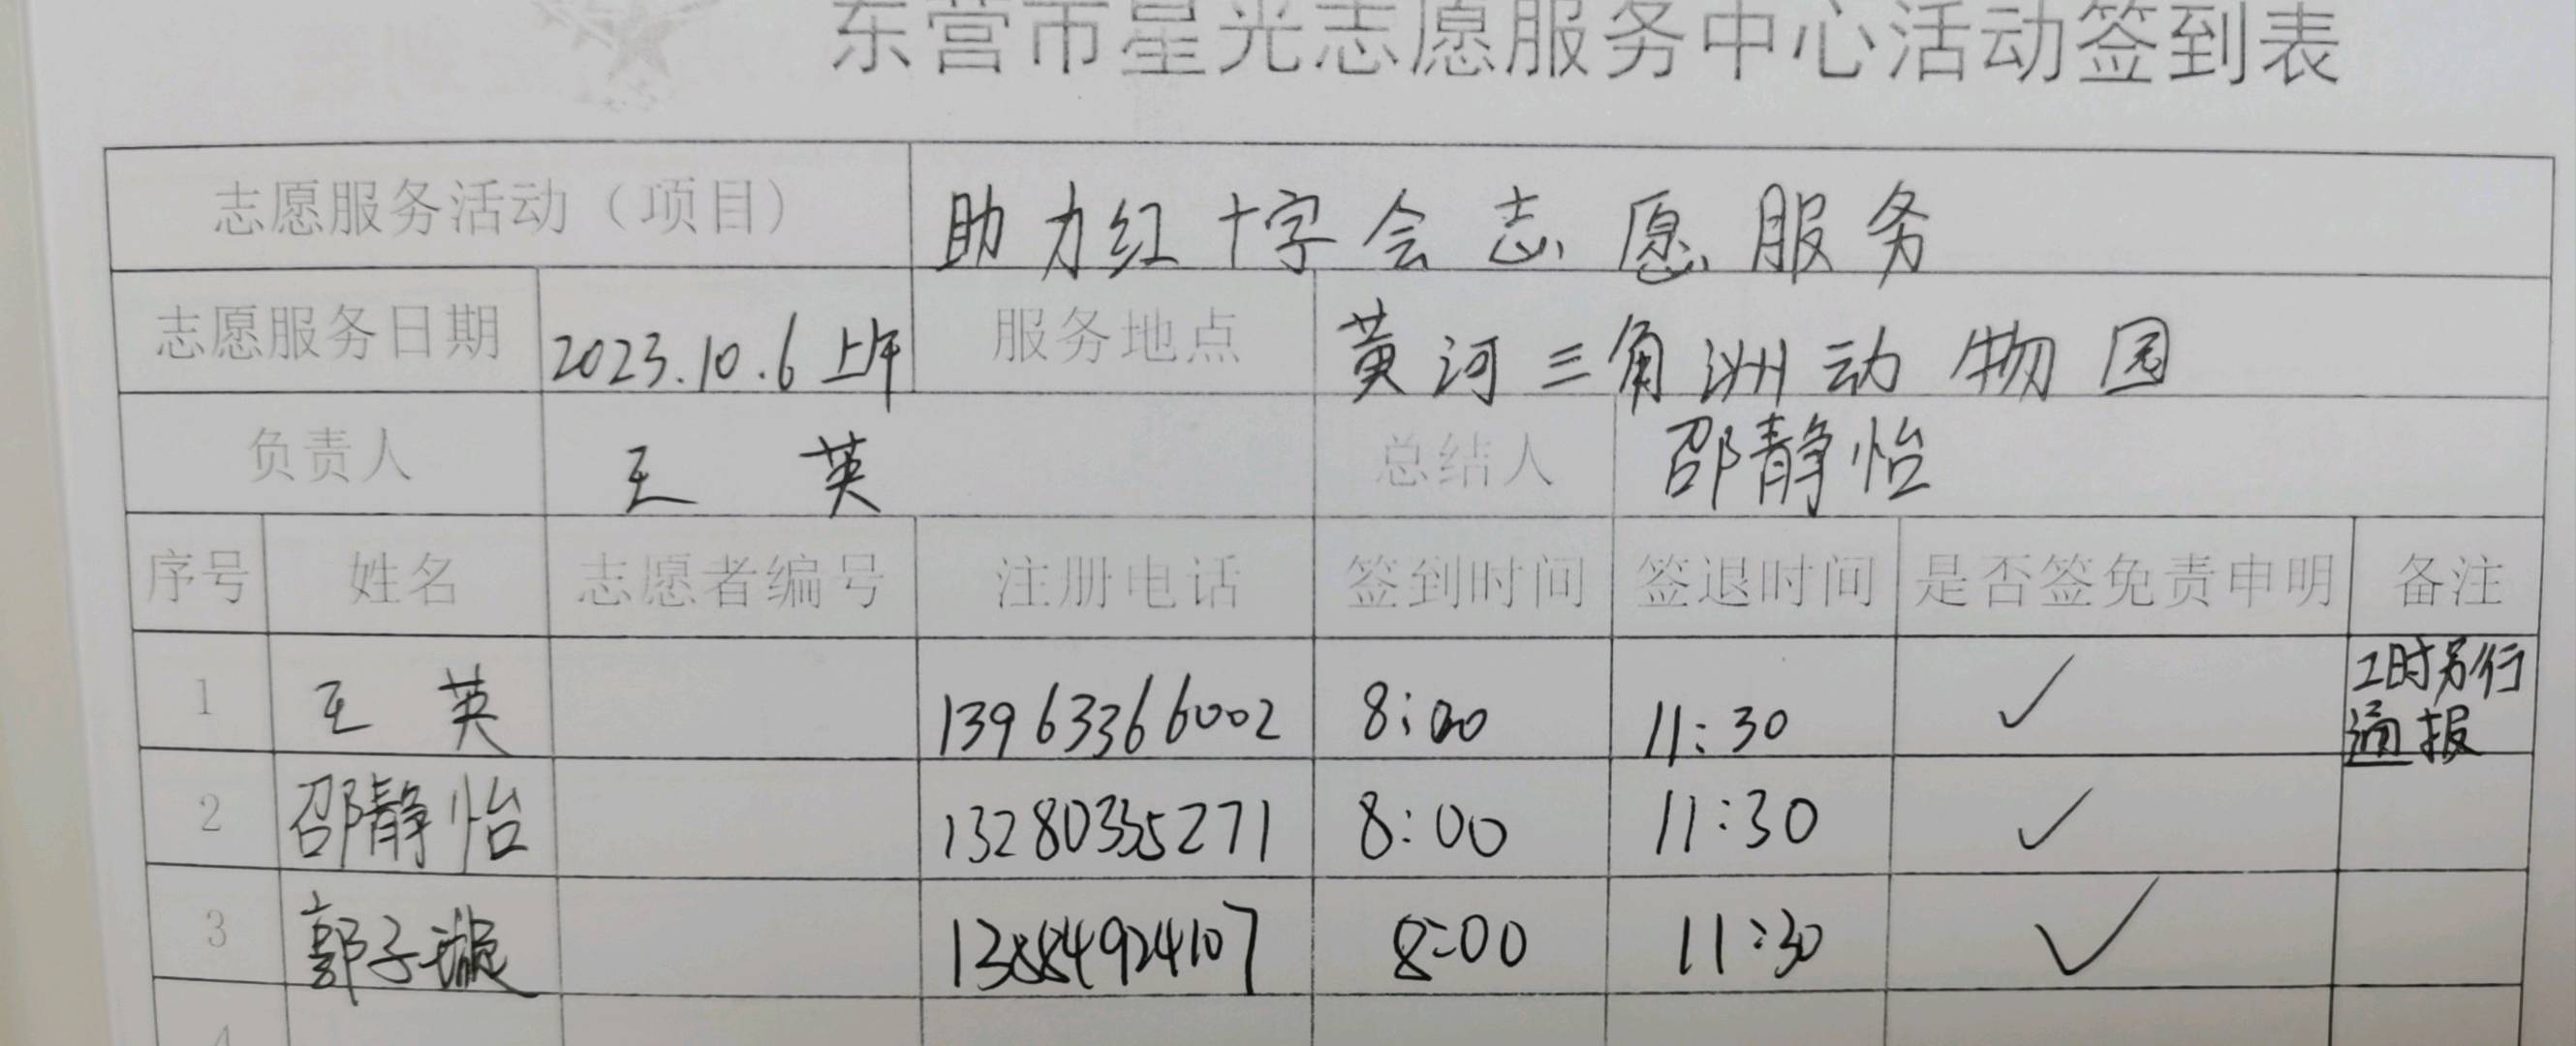 东营市星光志愿服务中心活动签到表
志愿服务活动（项目） 助力红十字会志愿服务
志愿服务日期 2023.10.6 上午 服务地点 黄河三角洲动物园
负责人 王英 总结人 邵静怡
序号 姓名 志愿者编号 注册电话 签到时间 签退时间 是否签免责申明 备注
1 王英 13963366002 8:00 11:30 ✓ 工时另行
通报
2 邵静怡 13280335271 8:00 11:30 ✓
3 郭子璇 13884924107 8:00 11:30 ✓
4